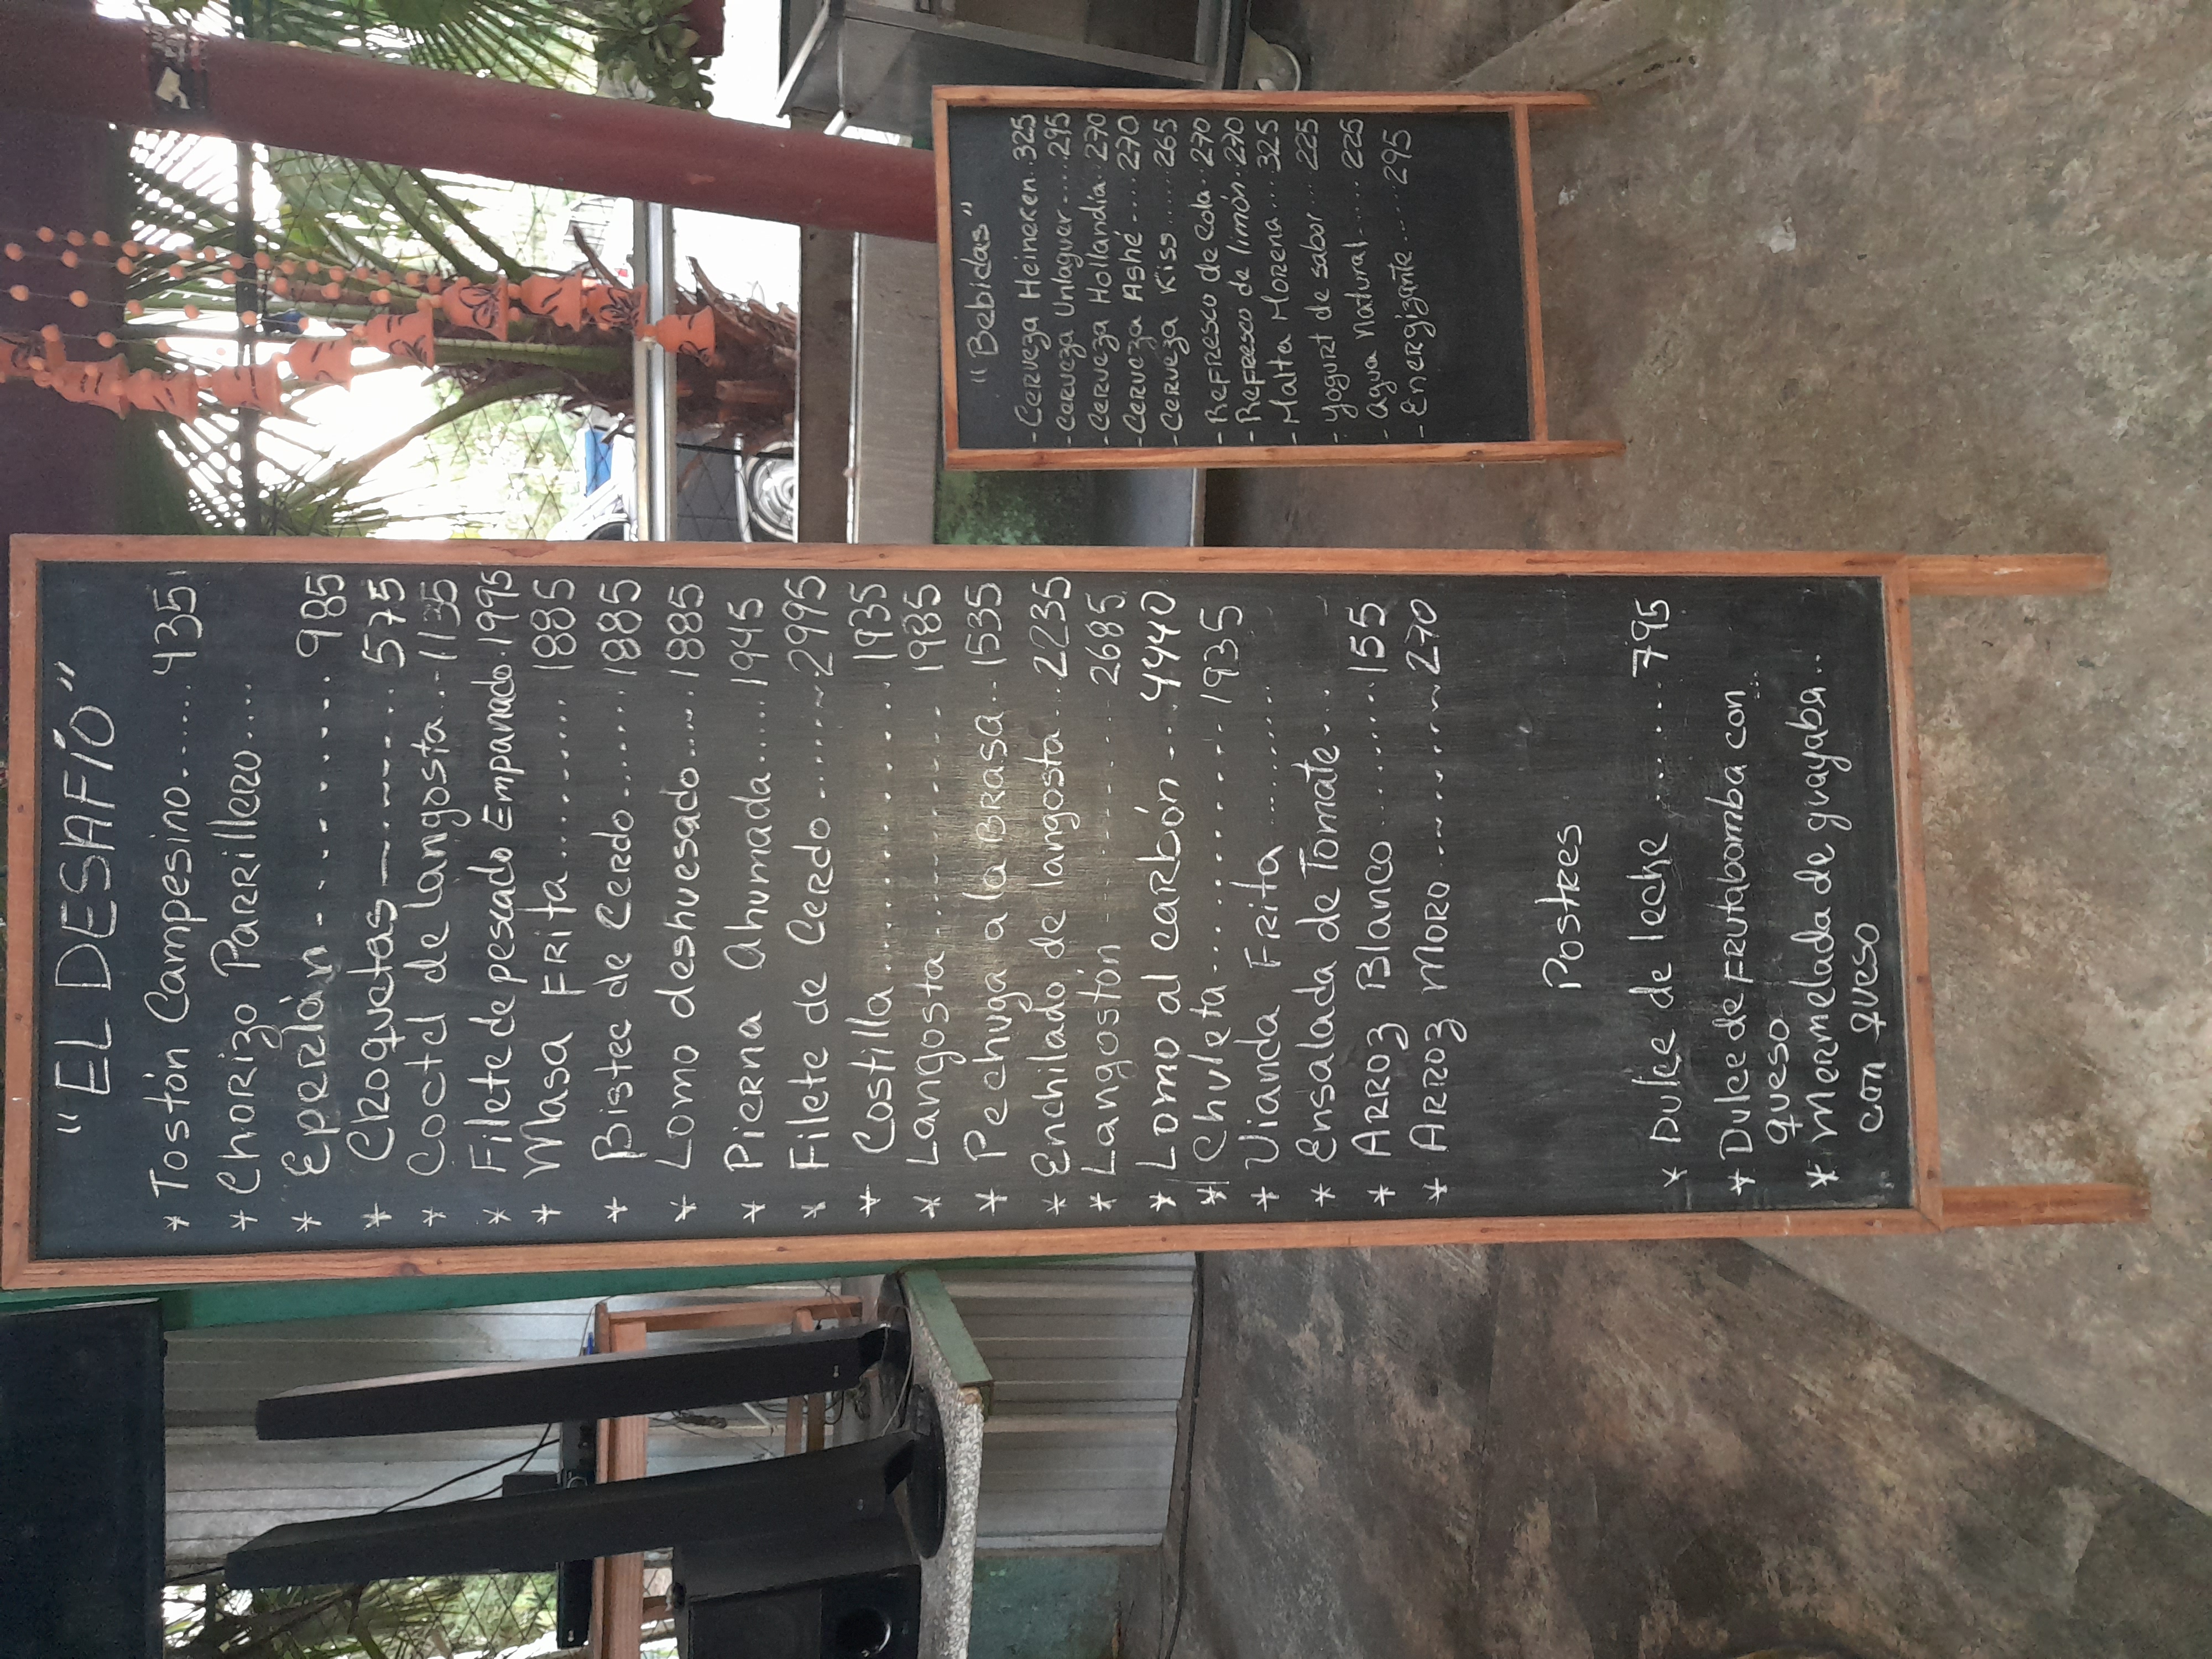 "EL DESAFÍO"
* Tostón Campesino...... 435
* Chorizo Parrillero....
* Eperlán.......... 985
* Croquetas........ 575
* Coctel de langosta...1135
* Filete de pescado Empanado.1995
* Masa Frita......... 1885
* Bistec de Cerdo.......1885
* Lomo deshuesado.....1885
* Pierna Ahumada.....1945
* Filete de Cerdo.......2995
* Costilla............. 1935
* Langosta........... 1985
* Pechuga a la Brasa..1535
* Enchilado de langosta...2235
* Langostón .......... 2685
* Lomo al carbón...4440
* Chuleta...........1935
* Vianda Frita .........
* Ensalada de Tomate...
* Arroz Blanco........155
* Arroz Moro.........270
Postres
* Dulce de leche ......795
* Dulce de Frutabomba con...
queso
* Mermelada de guayaba..
con queso
"Bebidas"
- Cerveza Heineken..325
- Cerveza Unlaguer.....295
- Cerveza Hollandia..270
- Cerveza Ashé....270
- Cerveza Kiss......265
- Refresco de Cola..270
- Refresco de limón..270
- Malta Morena....325
- Yogurt de sabor... 225
- Agua Natural..... 225
- Energizante.....295